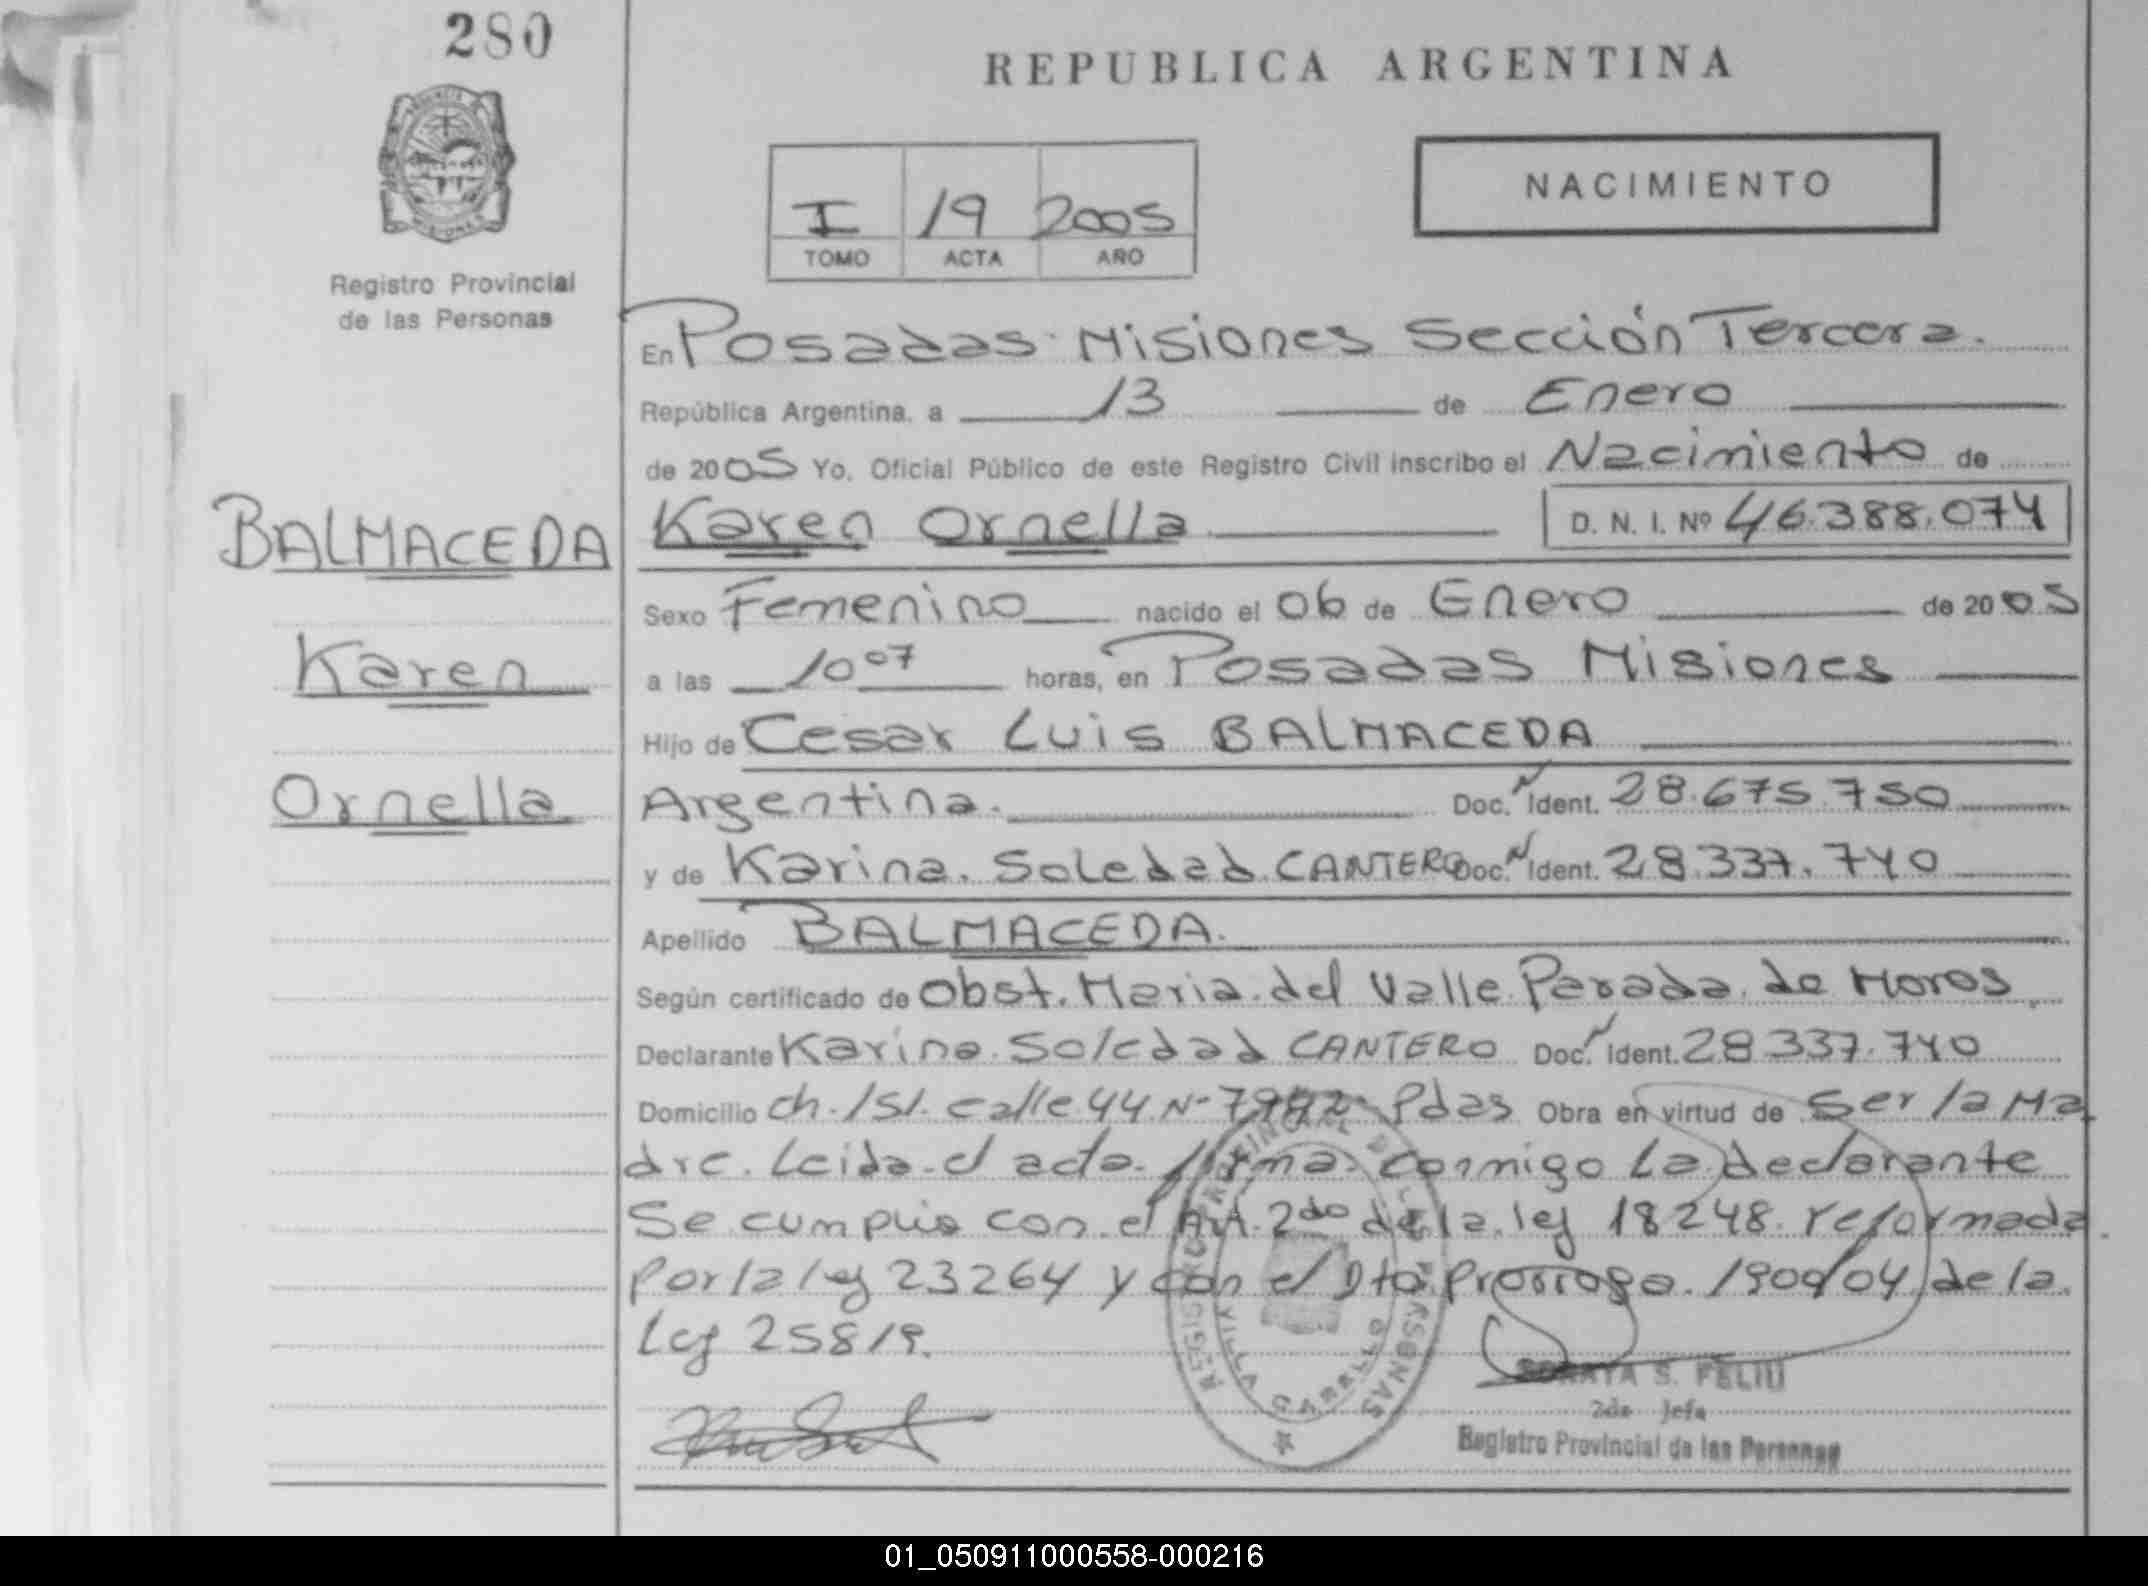 280
REPUBLICA ARGENTINA
NACIMIENTO
I 19 2005
TOMO ACTA AÑO
Registro Provincial
de las Personas
BALMACEDA
Karen
Ornella
En Posadas Misiones Sección Tercera.
República Argentina, a 13 de Enero
de 2005 Yo, Oficial Público de este Registro Civil inscribo el Nacimiento de
Karen Ornella D. N. I. Nº 46.388.074
Sexo Femenino nacido el 06 de Enero de 2005
a las 10 07 horas, en Posadas Misiones
Hijo de Cesar Luis BALMACEDA
Argentina. Doc. N Ident. 28.675.750
y de Karina Soledad CANTERO Doc. N Ident. 28.337.740
Apellido BALMACEDA.
Según certificado de Obst. Maria del Valle Parada de Moros
Declarante Karina Soledad CANTERO Doc. N Ident. 28.337.740
Domicilio ch. 151. calle 44 Nº Pdas Obra en virtud de Ser la Ma
dre. Leida el acta firma conmigo La declarante
Se cumplio con el Art. 2do de la ley 18248 reformada
Por la ley 23264 y con el Dto. Prorroga 1900/04 de la
Ley 25819.
REGISTRO PROVINCIAL DE LAS PERSONAS
SORAYA S. FELIU
2da Jefa
Registro Provincial de las Personas
01_050911000558-000216